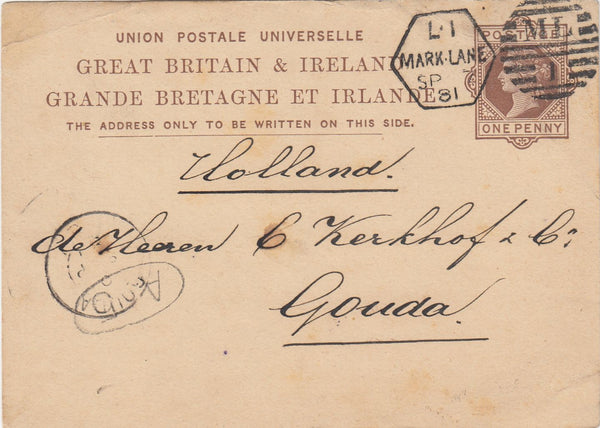 UNION POSTALE UNIVERSELLE
GREAT BRITAIN & IRELAND
GRANDE BRETAGNE ET IRLANDE
THE ADDRESS ONLY TO BE WRITTEN ON THIS SIDE.
L·1
MARK·LANE
SP
81
ML
1
POSTAGE
ONE PENNY
Holland.
de Heeren C Kerkhof & Co:
Gouda.
GOUDA
A